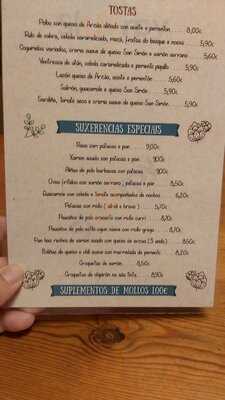 TOSTAS
Polbo con queixo de Arzúa aliñado con aceite e pementón ..... 8,00€
Rulo de cabra, cebola caramelizada, mazá, froitos do bosque e noces ..... 5,90€
Cogumelos variados, crema suave de queixo San Simón e xamón serrano ..... 5,60€
Ventresca de atún, cebola caramelizada e pemento piquillo ..... 5,90€
Lacón queixo de Arzúa, aceite e pementón ..... 5,60€
Salmón, guacamole e queixo San Simón ..... 5,90€
Sardiña, tomate seco e crema suave de queixo San Simón ..... 5,90€
SUXERENCIAS ESPECIAIS
Raxo con patacas e pan ..... 9,00€
Xamón asado con patacas e pan ..... 9,00€
Aliñas de polo barbacoa con patacas ..... 9,00€
Ovos fritidos con xamón serrano, patacas e pan ..... 8,50€
Guacamole con cebola e tomate acompañados de nachos ..... 6,20€
Patacas con mollo ( alioli e brava ) ..... 5,70€
con mollo curri ..... 8,70€
de polo estilo cajun suave con mollo grego ..... 8,70€
con xamón asado con queixo de arzúa (3 unds) ..... 8,50€
de queixo e chili suave con marmelada de pemento ..... 8,20€
Croquetas de xamón ..... 8,50€
Croquetas de chipirón na súa tinta ..... 8,90€
SUPLEMENTOS DE MOLLOS 1,00€